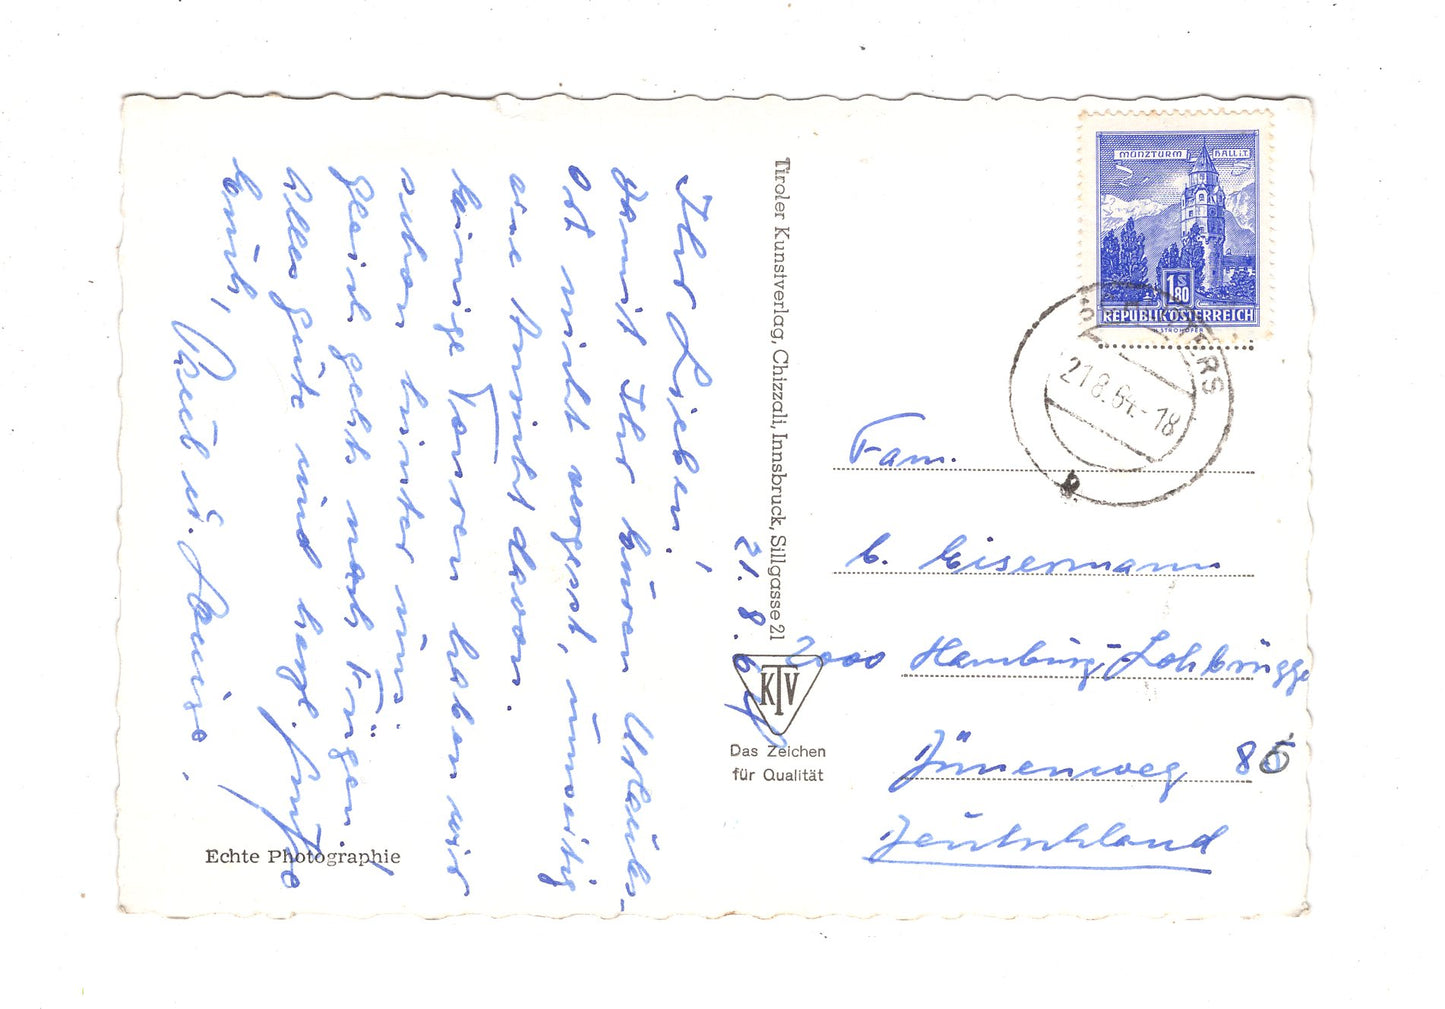 Ihr Lieben!
Damit Ihr euren Urlaubs-
ort nicht vergesst, unseitig
eine Ansicht davon.
Einige Touren haben wir
schon hinter uns.
Gleich gehts nach Fügen.
Alles Gute und herzl. Grüße
Euch,
u. Luise.
21.8.64
Tiroler Kunstverlag, Chizzali, Innsbruck, Sillgasse 21
KTV
Das Zeichen
für Qualität
Echte Photographie
MÜNZTURM HALL i.T.
1 S 80
REPUBLIK ÖSTERREICH
STROHOFER
21.8.64.-18
Fam.
E. Eisermann
2000 Hamburg-Lohbrügge
Dünenweg 86
Deutschland